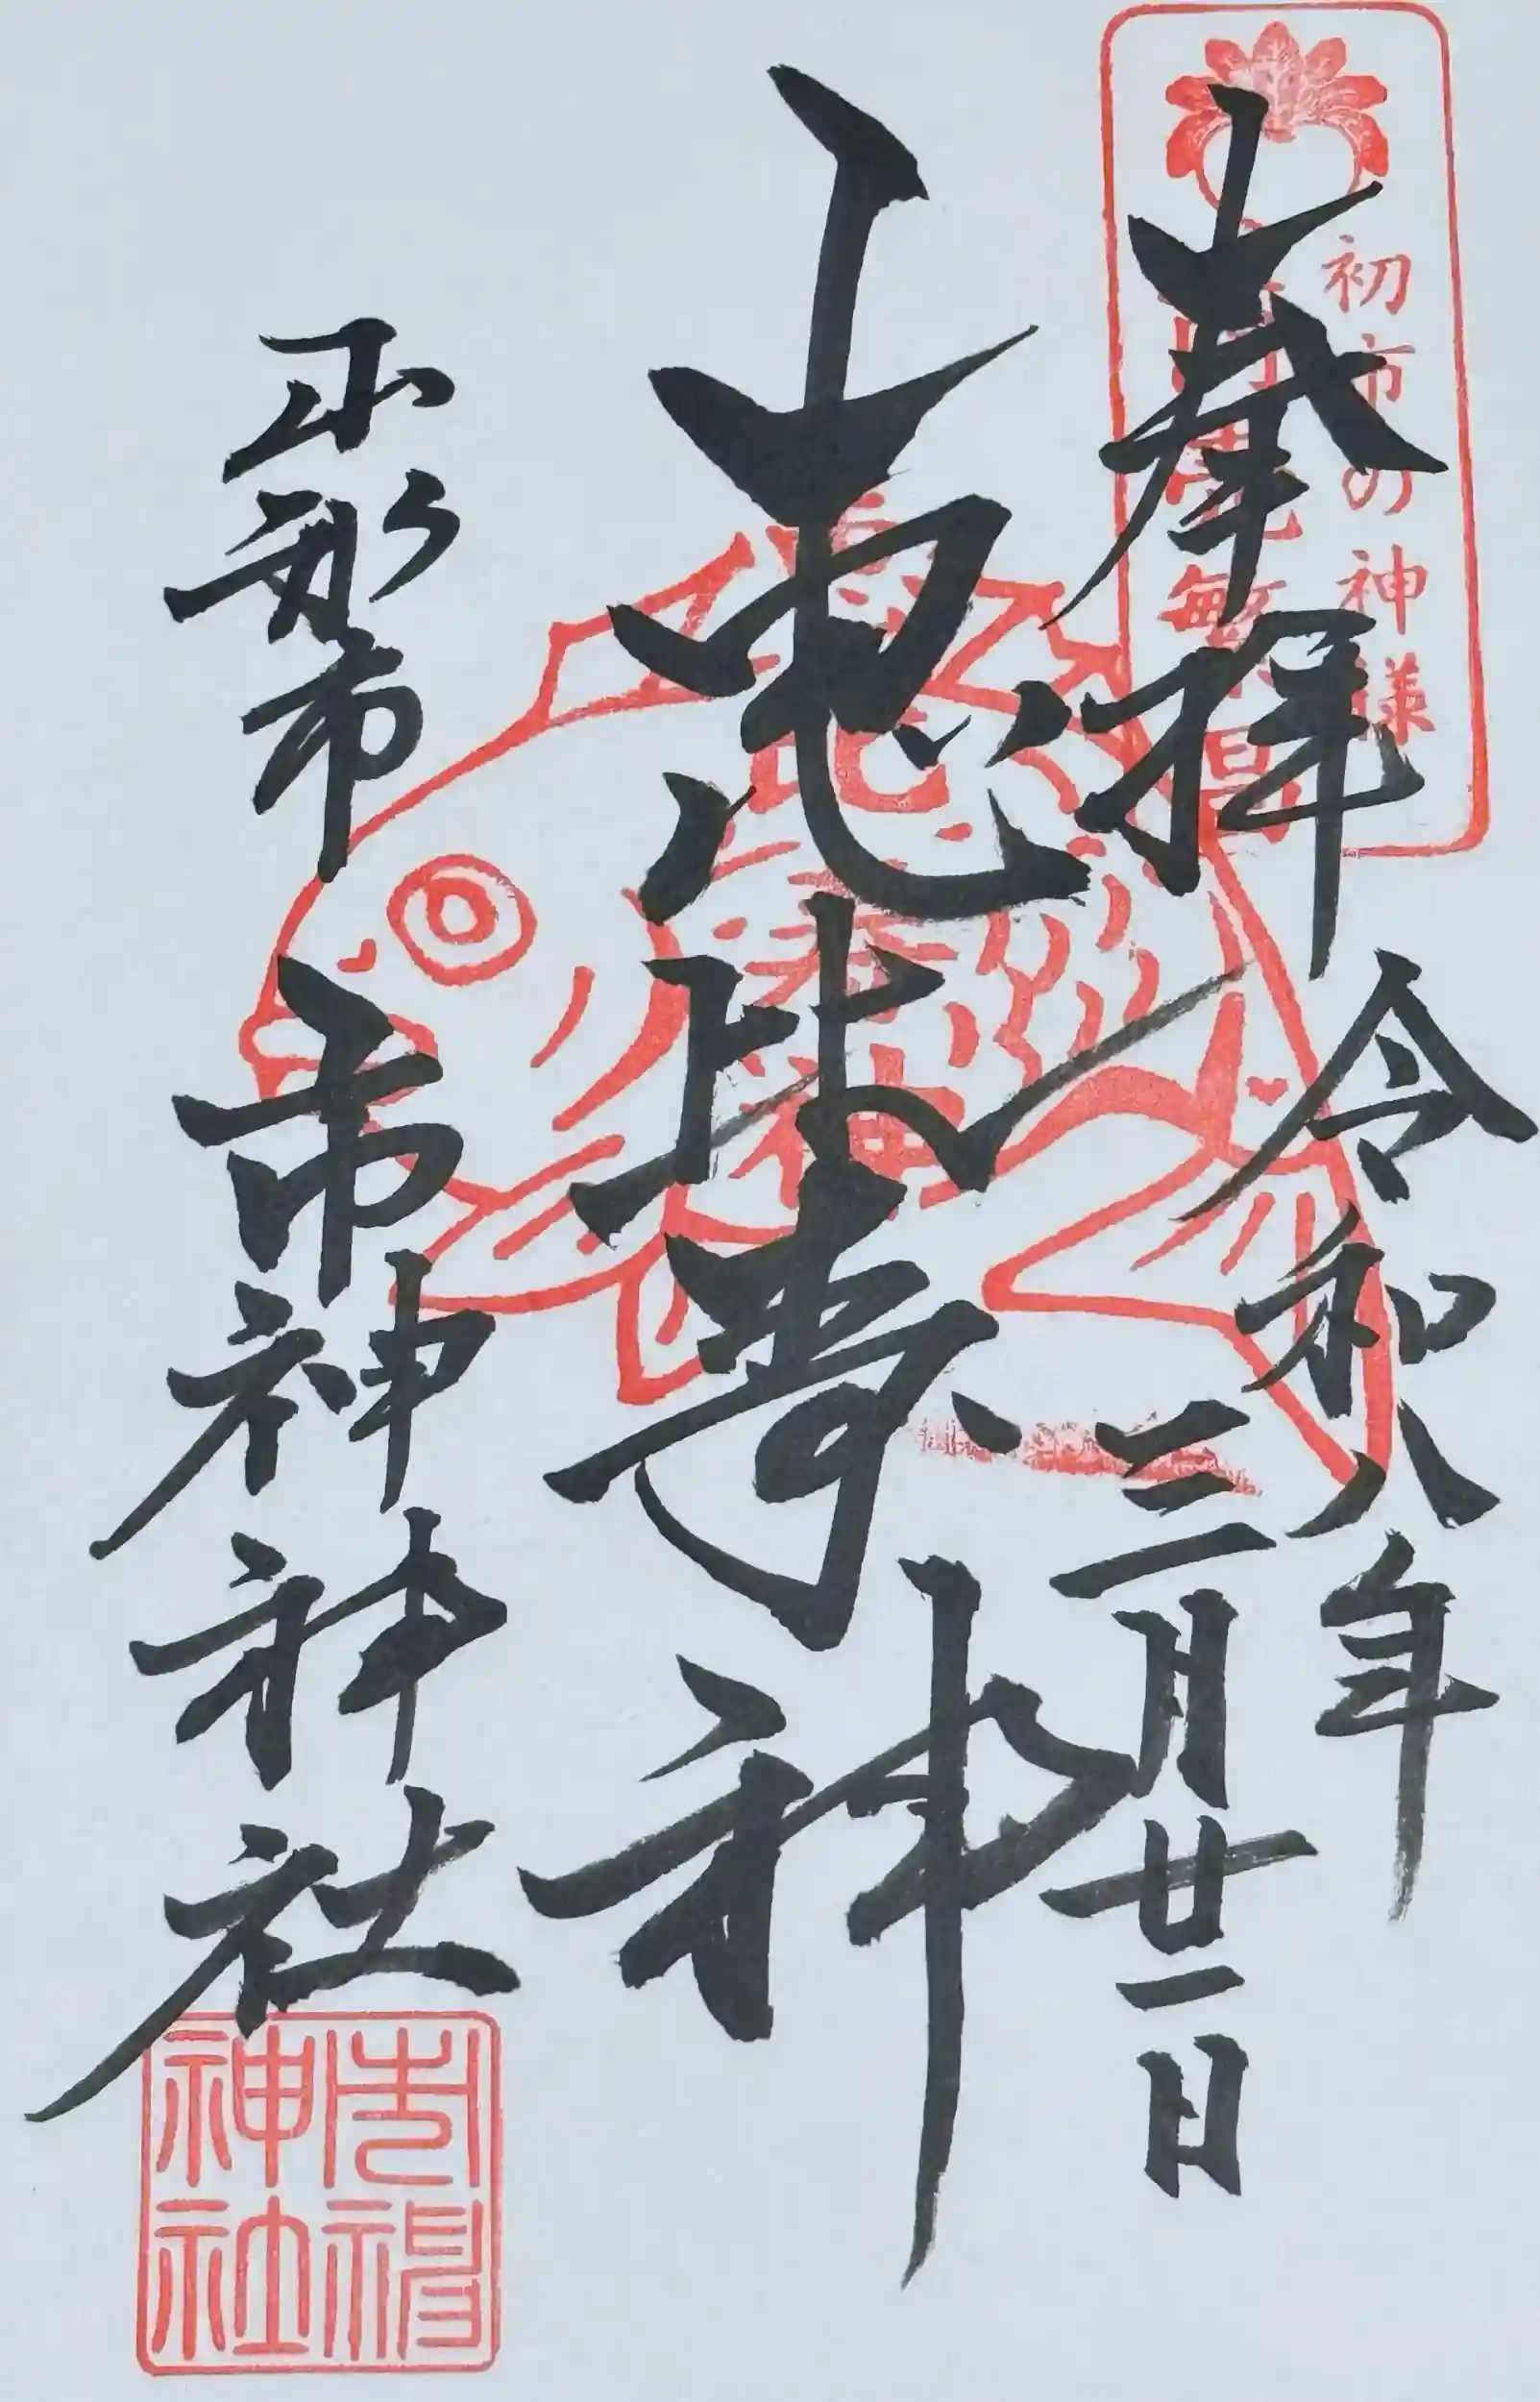 奉拝
令和八年
三月廿一日
初市の神様
商売繁昌
恵比寿神
山形市
市神神社
市神
神社